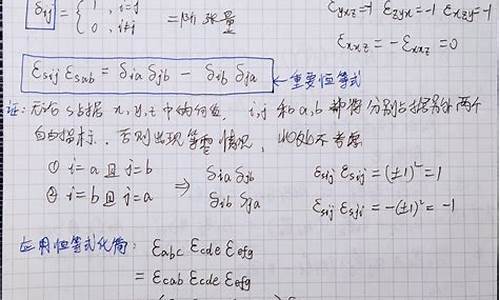 δij = { 1, i=j
0, i≠j = 二阶张量 εyxz=1 εzyx=-1 εxzy=-1
εxxz = -εxxz = 0
εsij εsab = δia δjb - δib δja ← 重要恒等式
证: 无论 s 占据 x, y, z 中的何值, i,j 和 a,b 都将分别占据另外两个
自由指标, 否则出现等零情况, 此处不考虑
① i=a 且 j=b ⇒ δia δjb εsij εsij = (±1)² = 1
② i=b 且 j=a δib δja εsij εsji = -(±1)² = -1
应用恒等式化简: εabc εcde εefg
= εcab εcde εefg